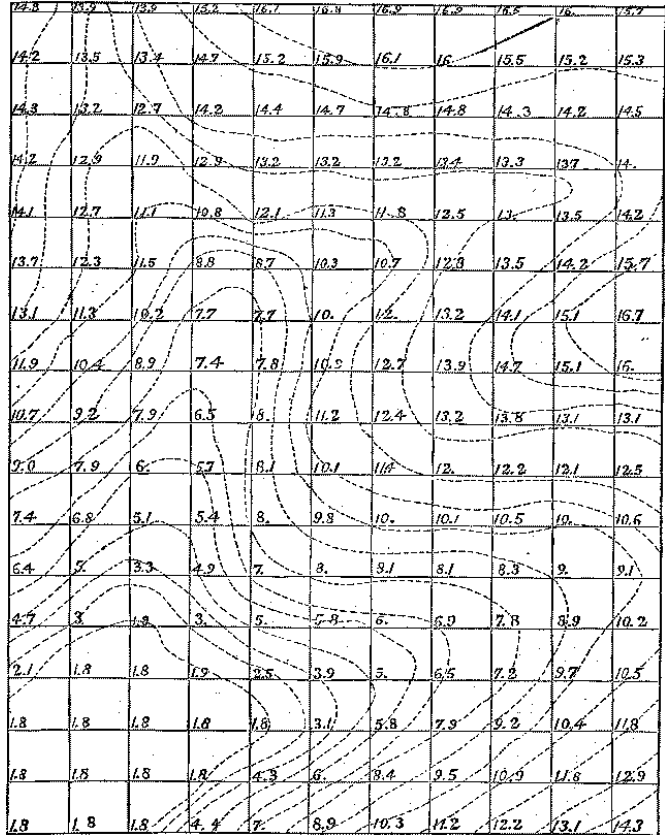 14.8 13.9 13.9 15.2 16.1 16.8 16.9 16.9 16.5 16. 15.7
14.2 13.5 13.4 14.7 15.2 15.9 16.1 16 15.5 15.2 15.3
14.3 13.2 12.7 14.2 14.4 14.7 14.8 14.8 14.3 14.2 14.5
14.2 12.9 11.9 12.9 13.2 13.2 13.2 13.4 13.3 13.7 14.
14.1 12.7 11.1 10.8 12.1 11.3 11.8 12.5 13. 13.5 14.2
13.7 12.3 11.5 8.8 8.7 10.3 10.7 12.8 13.5 14.2 15.7
13.1 11.3 10.2 7.7 7.7 10. 12. 13.2 14.1 15.1 16.7
11.9 10.4 8.9 7.4 7.8 10.9 12.7 13.9 14.7 15.1 16.
10.7 9.2 7.9 6.5 8. 11.2 12.4 13.2 13.8 13.1 13.1
9.0 7.9 6. 5.7 8.1 10.1 11.4 12. 12.2 12.1 12.5
7.4 6.8 5.1 5.4 8. 9.8 10. 10.1 10.5 10. 10.6
6.4 5. 3.3 4.9 7. 8. 8.1 8.3 9. 9.1
4.7 3. 1.8 3. 5. 5.8 6. 6.9 7.8 8.9 10.2
2.1 1.8 1.8 1.9 2.5 3.9 5. 6.5 7.2 9.7 10.5
1.8 1.8 1.8 1.8 1.8 3.1 5.8 7.9 9.2 10.4 11.8
1.8 1.8 1.8 1.8 4.3 6. 8.4 9.5 10.9 11.8 12.9
1.8 1.8 1.8 4.4 7. 8.9 10.3 11.2 12.2 13.1 14.3